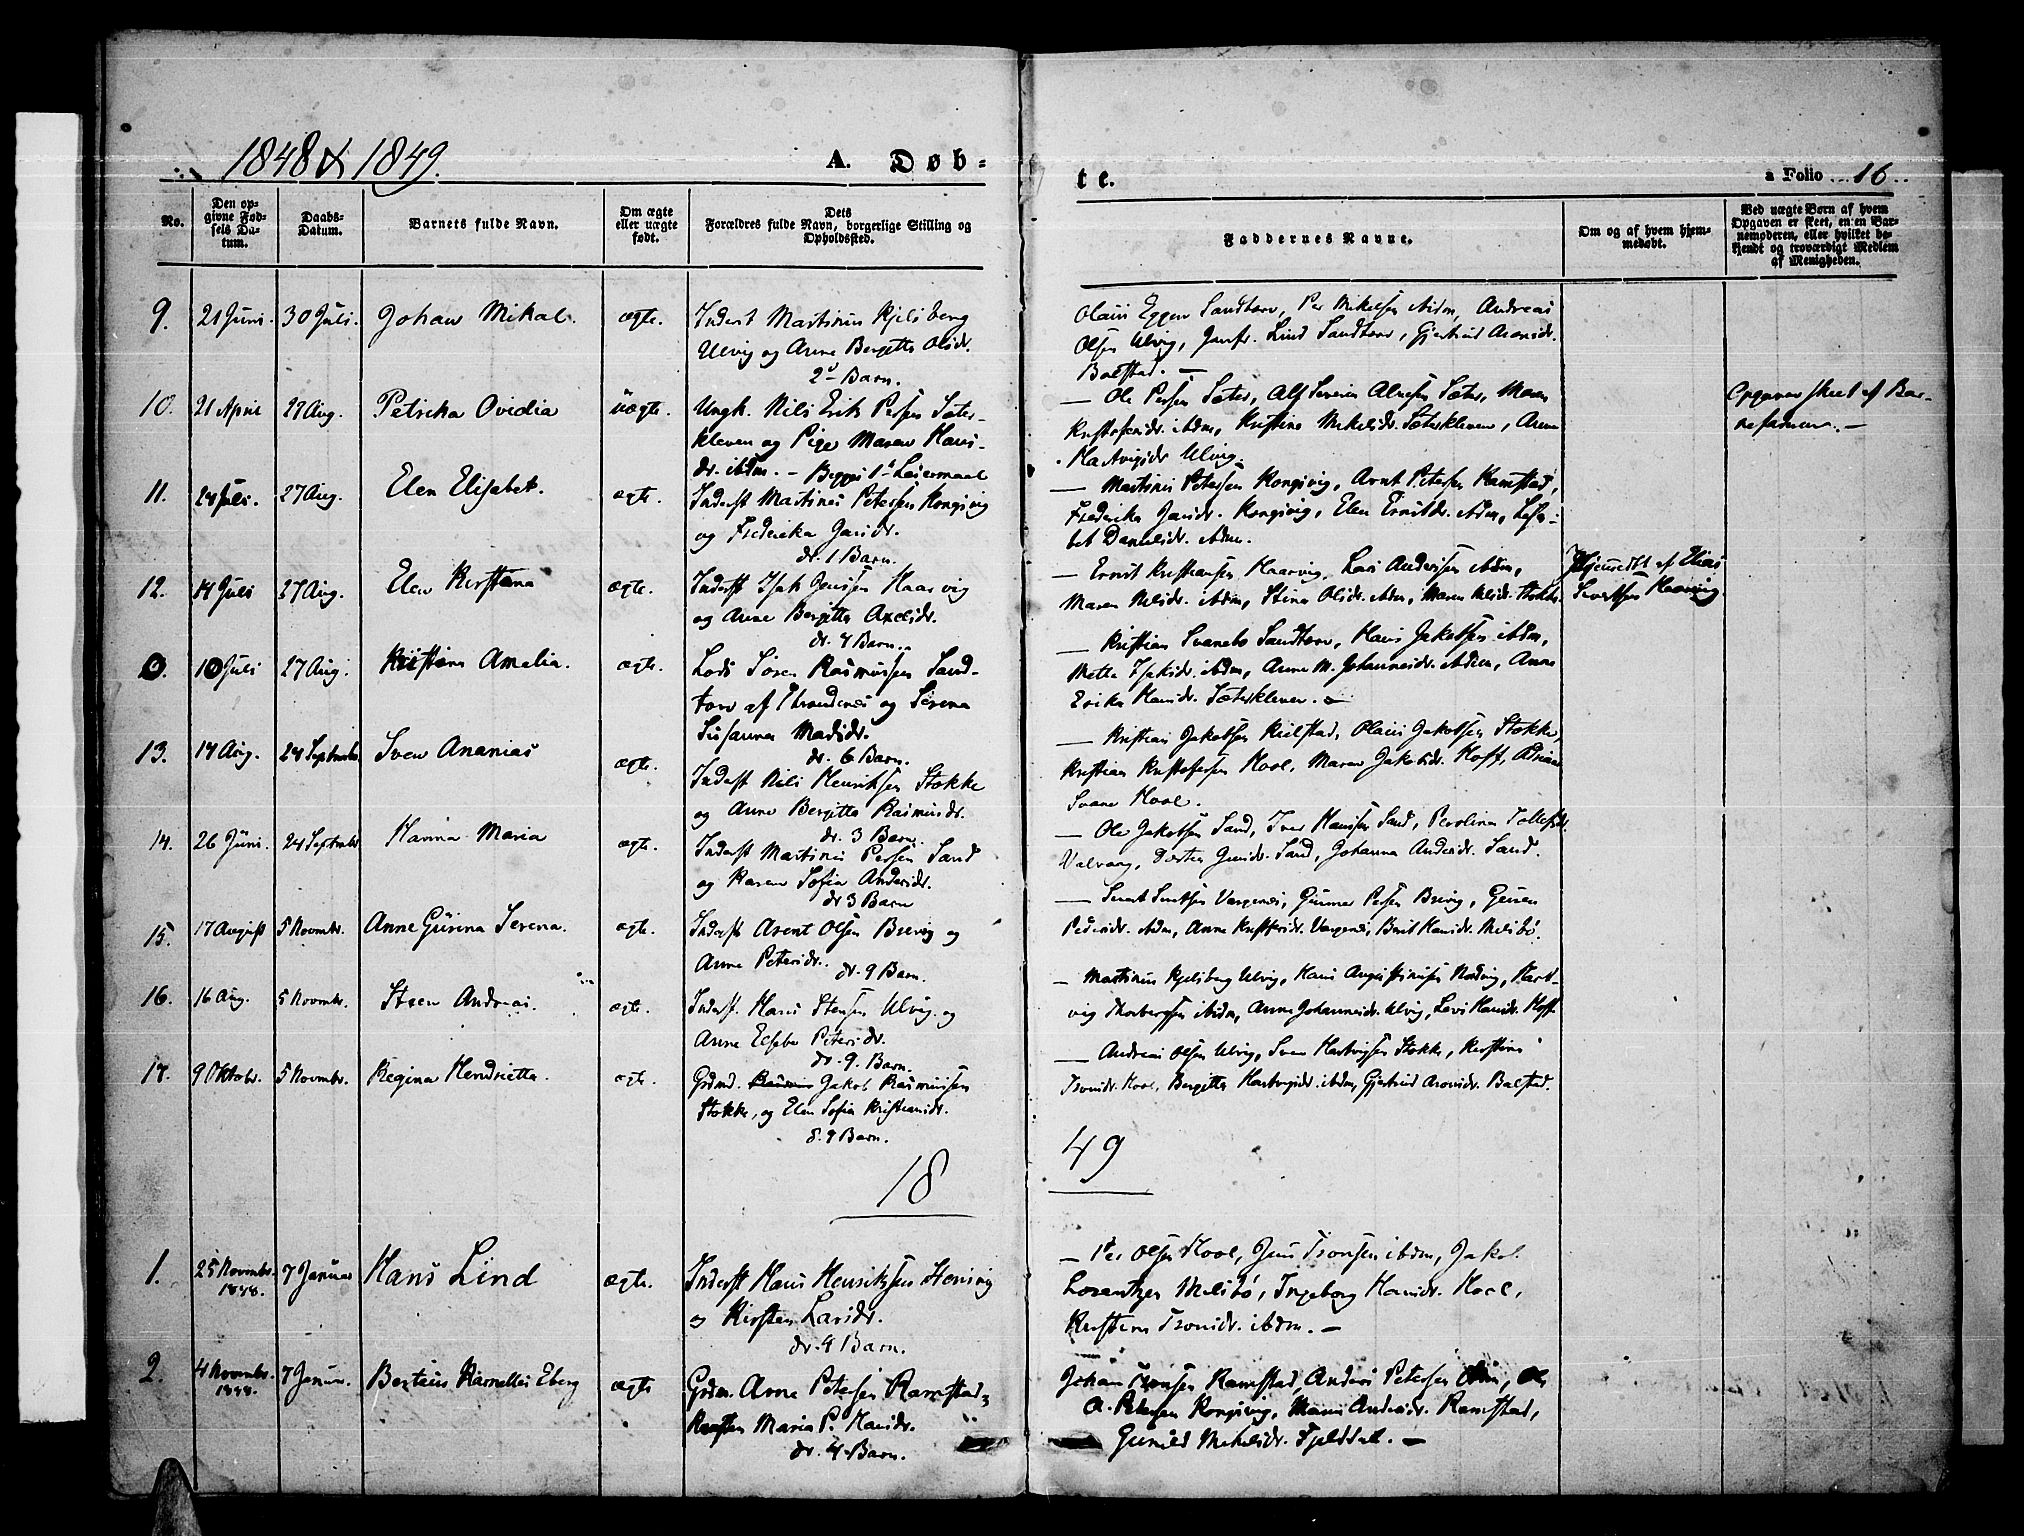 1848 & 1849.
A. Døb-
te.
a Folio 16
No.
Den op-
givne Fød-
sels Da-
tum.
Daabs-
Datum.
Barnets fulde Navn.
Om ægte
eller uægte
født.
Dets
Forældres fulde Navn, borgerlige Stilling og
Opholdssted.
Faddernes Navne.
Om og af hvem hjem-
medøbt.
Ved uægte Børn af hvem
Opgaven er skeet, enten Bar-
nemoderen, eller hvilket be-
kjendt og troværdigt Medlem
af Menigheden.
9. 21 Juni. 30 Juli. Johan Mikal. ægte. Inderst Martinus Kjelsberg
Ulvig og Anne Bergitta Olsdr.
2d Barn.
Olaus Eggen Sandtorv, Per Mikelsen ibdm, Andreas
Olsen Ulvig, Jomfr. Lind Sandtorv, Gjertrud Aronsdr.
Balstad. —
10. 21 April 27 Aug. Petrika Ovidia uægte. Ungk. Nils Erik Persen Sæter-
kleven og Pige Maren Hans-
dr. ibdm. — Begges 1st Leiermaal
— Ole Persen Sæter, Alf Severin Alnesen Sæter, Maren
Kristofersdr. ibdm, Kristine Mikelsdr. Sæterkleven, Anne
Hartvigsdr Ulvig.
Opgaven skeet af Bar-
nefaderen. —
11. 24 Juli. 27 Aug. Elen Elisabet. ægte. Inderst Martinus Petersen Kongsvig
og Frederika Jansdr.
dr. 1 Barn.
— Martinus Petersen Kongsvig, Arnt Petersen Ramstad,
Frederika Jansdr. Kongsvig, Elen Ernstdr. ibdm, Lisa-
bet Danielsdr. ibdm.
12. 14 Juli 27 Aug. Elen Kirstina ægte. Inderst Isak Jensen Haarvig
og Anne Bergitta Axelsdr.
dr. 4 Barn.
— Ernst Kristiansen Haarvig, Lars Andersen ibdm,
Maren Nilsdr. ibdm, Stina Olsdr. ibdm, Maren Nilsdr. Stokke.
Hjemedøbt af Elias
Sivertsen Haarvig
0. 10 Juli 27 Aug. Kristians Amalia. ægte. Lods Søren Rasmussen Sand-
torv af Throndenes og Serena
Susanna Madsdr.
dr. 6 Barn.
— Kristian Svanebo Sandtorv, Hans Jakobsen ibdm,
Metta Isaksdr. ibdm, Anne M. Johannesdr. ibdm, Anne
Erika Hansdr. Sæterkleven. —
13. 14 Aug. 24 Septembr. Sven Ananias ægte. Inderst Nils Henriksen Stokke
og Anne Bergitta Rasmusdr.
dr. 3 Barn.
— Kristian Jakobsen Kilstad, Olaus Jakobsen Stokke,
Kristian Kristofersen Hool, Maren Jakobsdr. Hoff, Adriane
Svane Hool.
14. 26 Juni. 24 Septembr. Hanna Maria ægte. Inderst Martinus Persen Sand
og Karen Sofia Andersdr.
dr 3 Barn
— Ole Jakobsen Sand, Iver Hansen Sand, Perolina Tollefsdr.
Valvaag, Dorthea Jensdr. Sand, Johanna Andersdr. Sand.
15. 17 August 5 Novmbr. Anne Gurina Serena. ægte. Inderst Arent Olsen Brevig og
Anne Petersdr.
dr. 9 Barn.
— Sivert Sivertsen Vargenes, Gunnar Persen Brevig, Guren
Pedersdr. ibdm, Anne Kristensdr. Vargenes, Berit Hansdr. Melsbø.
16. 16 Aug. 5 Novmbr. Steen Andreas. ægte. Inderst. Hans Stensen Ulvig og
Anne Elseba Petersdr.
dr. 9. Barn.
— Martinus Kjelsberg Ulvig, Hans Augustinusen Nordvig, Hart-
vig Thorbergsen ibdm, Anne Johannesdr. Ulvig, Lovi Hansdr. Hoff.
17. 9 Oktobr. 5 Novmbr. Regina Hendrietta. ægte. Grdmd. Rasmus Jakob Rasmussen
Stokke, og Elen Sofia Kristiansdr.
d. 9 Barn.
— Andreas Olsen Ulvig, Sven Hartvigsen Stokke, Kirstine
Tronsdr. Hool, Bergitta Hartvigsdr. ibdm, Gjertrud Aronsdr. Balstad.
18 49
1. 25 Novmbr. 1848. 7 Januar Hans Lind ægte. Inderst Hans Henriksen Stensvig
og Kirsten Larsdr.
dr. 9 Barn.
— Per Olsen Hool, Jens Tronsen ibdm, Jakob
Lorentzen Melsbø, Ingeborg Hansdr. Hool,
Kristina Tronsdr. ibdm. —
2. 4 Novmbr. 1848. 7 Januar. Berteus Kornelius Eberg ægte Grdm. Arne Petersen Ramstad,
Maria P. Hansdr.
dr. 4. Barn.
Johan Tronsen Ramstad, Anders Petersen
A. Petersen Kongsvig, Maren Andersdr. Ramstad,
Gunild Mikelsdr. Fjeldsæl. —